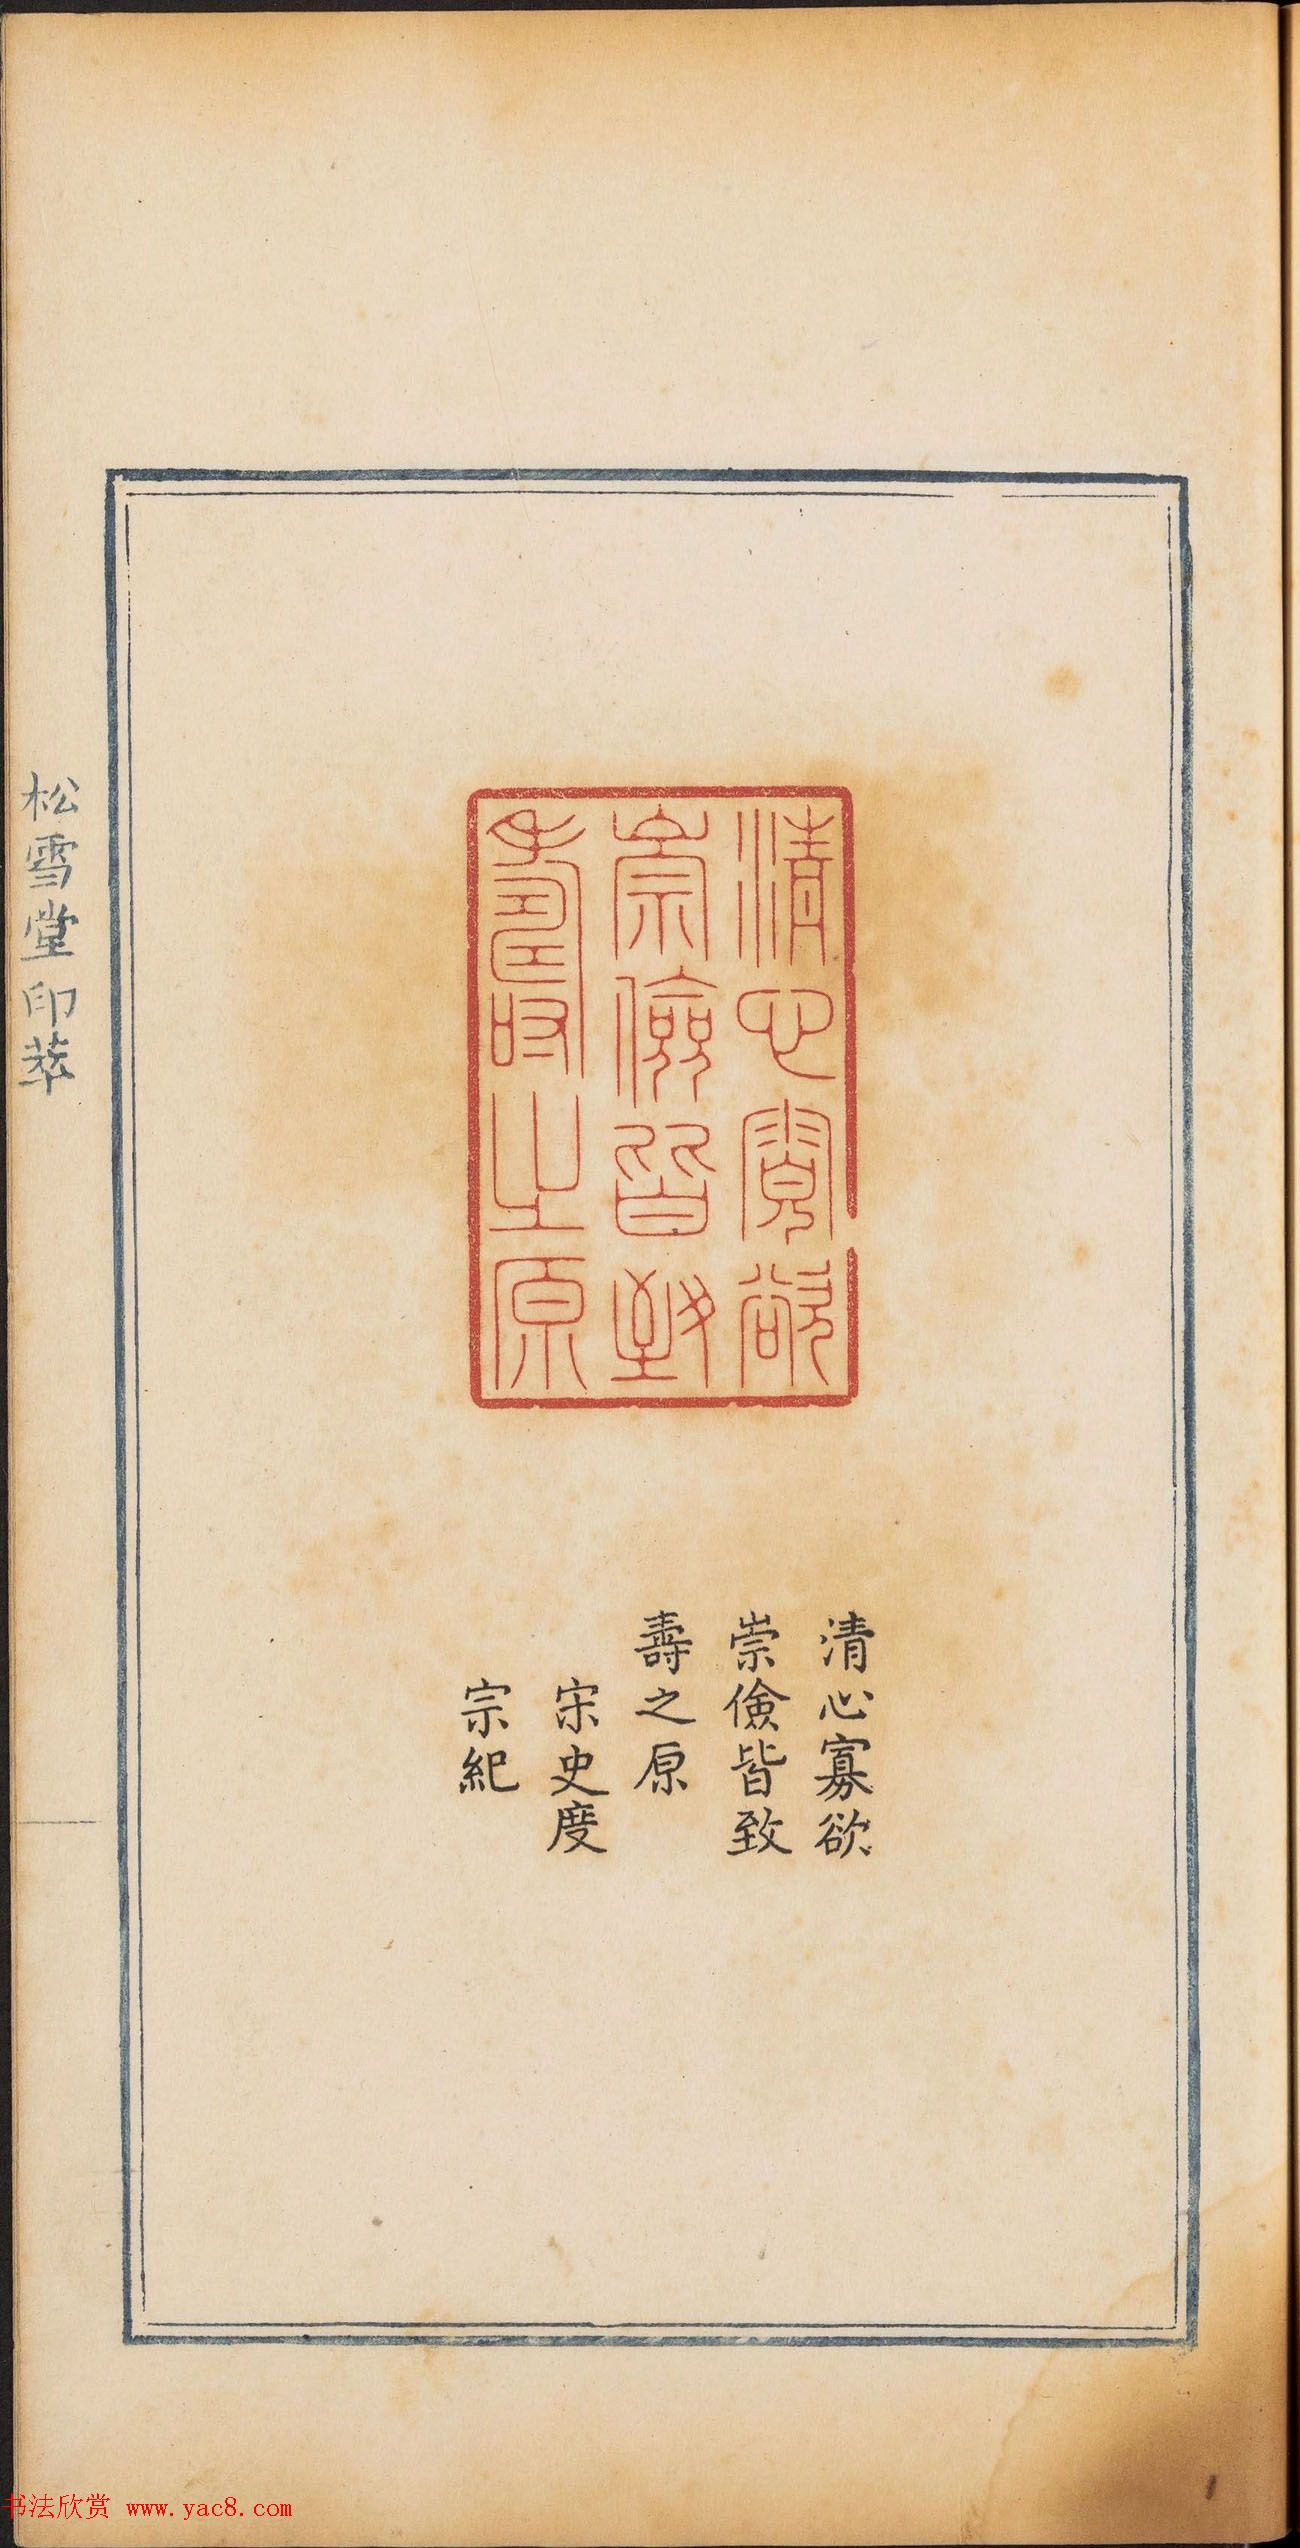 清心寡欲
崇儉皆致
壽之原
清心寡欲
崇儉皆致
壽之原
宋史度
宗紀
松雪堂印萃
书法欣赏 www.yac8.com